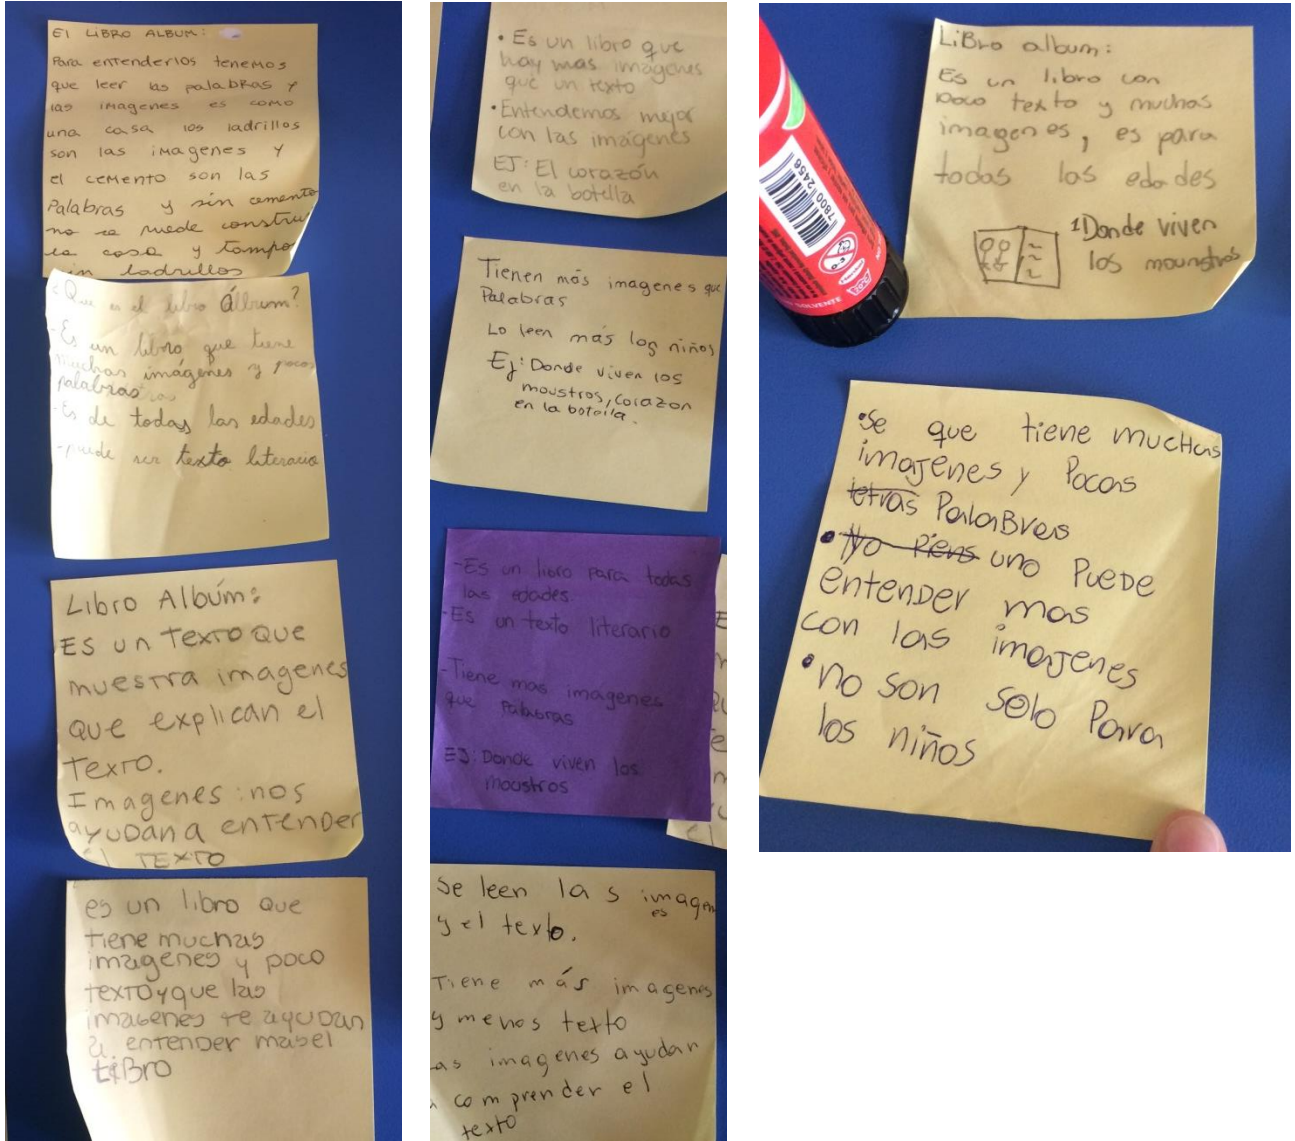 El LIBRO ALBUM:
Para entenderlos tenemos
que leer las palabras y
las imagenes es como
una casa los ladrillos
son las imagenes y
el cemento son las
Palabras y sin cemento
no se puede constru
la casa y tampo
sin ladrillos
¿Que es el libro Álbum?
-Es un libro que tiene
muchas imágenes y pocas
palabras
-Es de todas las edades
-puede ser texto literario
Libro Albúm:
ES UN TEXTO QUE
muestra imagenes
que explican el
Texto.
Imagenes: nos
ayudan a entender
el TEXTO
es un libro que
tiene muchas
imagenes y poco
texto y que las
imagenes te ayudan
a entender mas el
LiBro
• Es un libro que
hay mas imágenes
que un texto
• Entendemos mejor
con las imágenes
EJ: El corazón
en la botella
Tienen más imagenes que
Palabras
Lo leen más los niños
Ej: Donde viven los
moustros, corazon
en la botella.
-Es un libro para todas
las edades.
-Es un texto literario
-Tiene mas imagenes
que palabras
EJ: Donde viven los
moustros
Se leen las imagen
es
y el texto.
Tiene más imagenes
y menos texto
as imagenes ayudan
a comprender el
texto
LiBro album:
Es un libro con
poco texto y muchas
imagenes, es para
todas las edades
1 Donde viven
los mounstros
7800 2456
SOLVENTE
•Se que tiene muchas
imajenes y Pocas
letras PalaBras
• No Piens uno Puede
entender mas
con las imajenes
• no son solo Para
los niños